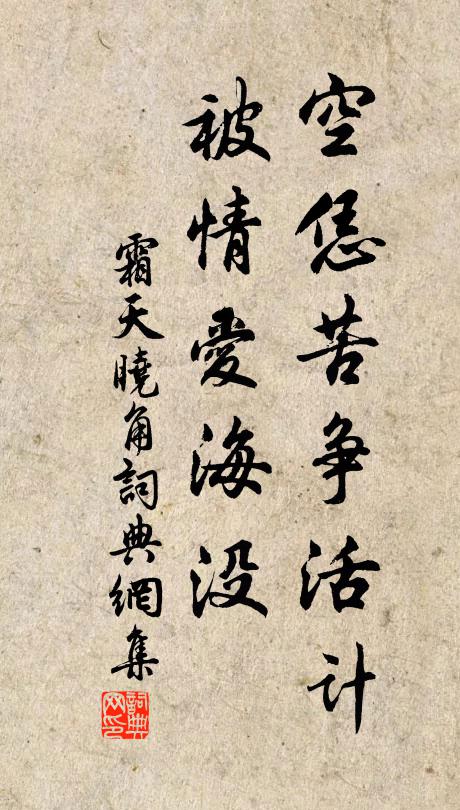 空恁苦争活计
被情愛海没
霜天曉角詞典網集
詞典网印